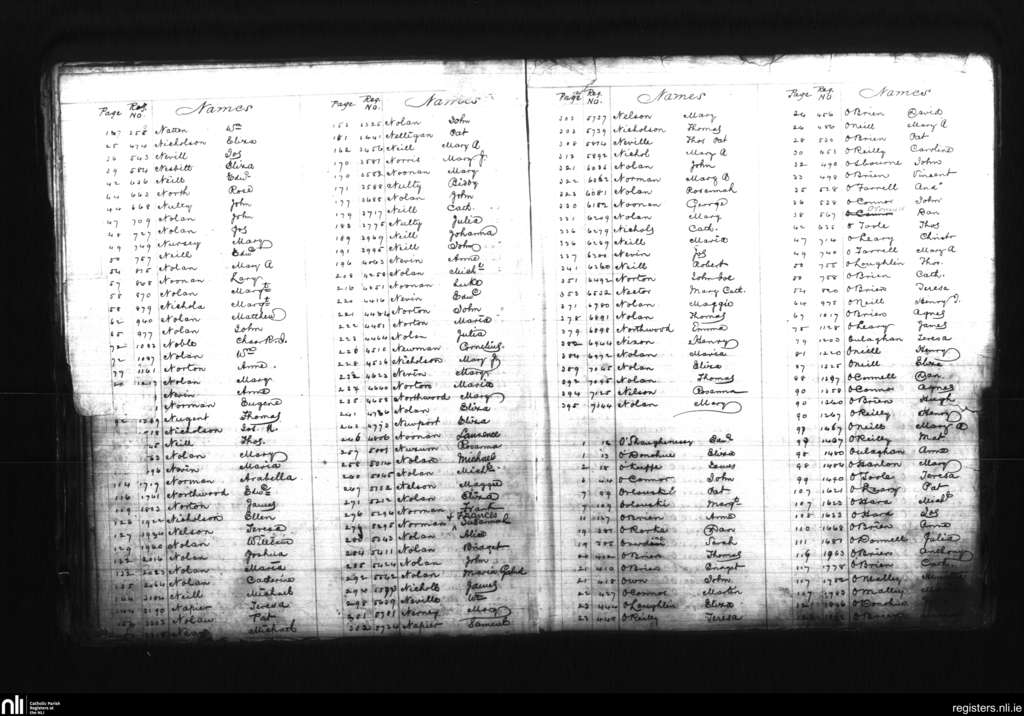 Page Reg. No. Names
147 258 Natten Wm
25 474 Nicholson Eliza
36 543 Nevill Jos
39 584 Nesbitt Eliza
42 636 Neill Edwd
44 663 North Rose
44 668 Nulty John
47 709 Nolan John
48 727 Nolan Jos
49 749 Nursey Mary
50 757 Neill Edwd
54 815 Nolan Mary A
57 868 Noonan
58 870 Nolan Margt
58 879 Nichols Margt
62 940 Nolan Matthew
65 977 Nolan John
72 Noble
72 Nolan Wm
77 1161 Norton Anne
Nolan Mary
Nevin Anne
Norman Eugene
Nugent Thomas
Nicholson Jos. R.
Neill Thos.
Nolan Mary
Nevin Maria
Norman Arabella
114 1717 Northwood Edwd
116 1741 Norton James
119 1803 Nicholson Ellen
126 1922 Nelson Teresa
Nolan William
Nolan Joshua
Nolan Maria
Nolan Catherine
Neill Michael
Napier Teresa
Nolan Pat
Michael
Page Reg. No. Names
153 2325 Nolan John
181 Nelligan Pat
162 2456 Neill Mary A
170 2587 Norris Mary J.
170 Noonan Mary
171 2588 Nulty Biddy
177 2688 Nolan John
179 2717 Neill Cath.
183 2775 Nulty Julia
189 2969 Neill Johanna
191 2995 Neill John
196 4063 Nevin Anne
218 4258 Nolan Michl
216 4251 Noonan Luke
220 4416 Nevin Edwd
221 4434 Norton John
222 4451 Norton Maria
223 4464 Nolan Julia
228 4510 Newman Cornelius
228 4526 Nicholson Mary J
232 4623 Nevin Mary
234 4660 Norton Maria
235 4688 Northwood Mary
241 4786 Nolan Eliza
242 4793 Newport Eliza
246 4806 Noonan Laurence
257 5001 Newsum Rosanna
258 5014 Nolan Michael
Nolan Michl
267 5152 Nelson Maggie
271 5212 Nolan Eliza
276 5296 Norman
276 5295 Norman Susannah
280 5363 Nolan Alice
284 5411 Nolan Bridget
285 5424 Nolan John
292 5562 Nolan Maria
294 5593 Nichols James
298 5639 Neville Wm
301 5701 Mary
302 5724 Napier Samuel
Page Reg. No. Names
303 5737 Nelson Mary
303 5739 Nicholson Thomas
308 5814 Neville Thos Pat
313 5892 Nichol Mary A
321 6036 Nolan John
322 6063 Norman Mary B
323 6081 Nolan Rosannah
330 6182 Noonan George
331 6209 Nolan Mary
336 6279 Nichols Cath.
336 6289 Neill Maria
337 6300 Nevin Jos
341 6360 Neill Robert
351 6492 Norton John Joe
353 6552 Nestor Mary Cath.
371 6780 Nolan Maggie
378 6891 Nolan Thomas
379 6898 Northwood Emma
382 6944 Nixon Henry
384 6992 Nolan Maria
389 7065 Nolan Eliza
392 7095 Nolan Thomas
394 7125 Nelson Rosanna
395 7164 Nolan Mary
1 12 O'Shaughnessy Edwd
1 13 O'Donohue Eliza
2 18 O'Keeffe James
3 44 O'Connor John
7 89 Orlouski Pat
7 109 Orlouski Margt
11 157 O'Brien Anne
19 385 O'Rorke Dan
19 385 Sarah
20 402 O'Brien Thomas
21 410 O'Brien
21 418 Own John
22 427 O'Connor Martin
23 444 O'Loughlin Eliza
23 445 O'Reilly Teresa
Page Reg. No. Names
24 456 O'Brien David
24 480 O'Neill Mary A
28 530 O'Brien Pat
30 453 O'Reilly Caroline
32 490 Osbourne John
33 498 O'Brien Vincent
35 528 O'Farrell Andw
36 538 O'Connor John
38 567 O'Connor Dan
42 635 O'Toole Thos
47 714 O'Leary Christr
49 740 O'Farrell Mary A
50 755 O'Loughlin Thos.
50 758 O'Brien Cath.
54 820 O'Brien Teresa
64 975 O'Neill Henry J.
67 1017 O'Brien Agnes
75 1128 O'Leary James
79 1200 Oulaghan Teresa
81 1220 O'Neill Henry
87 1325 O'Neill Eliza
88 1297 O'Connell Dan
90 1358 O'Connor Agnes
90 1360 O'Brien Hugh
90 1367 O'Reilly Henry
97 1469 O'Neill Mary A
98 1467 O'Reilly Mat
98 1480 Oulaghan Anne
98 1484 O'Hanlon Mary
99 1490 O'Toole Teresa
107 1621 O'Leary Pat
107 1623 O'Hara Michl
108 1623 O'Hara Jos
110 1668 O'Brien Anne
111 1687 O'Donnell Julia
116 1763 O'Brien Anthony
117 1778 O'Brien Cath.
117 1782 O'Malley
O'Malley
O'Donohue
O'Brien
nli
Catholic Parish
Registers at
the NLI
registers.nli.ie